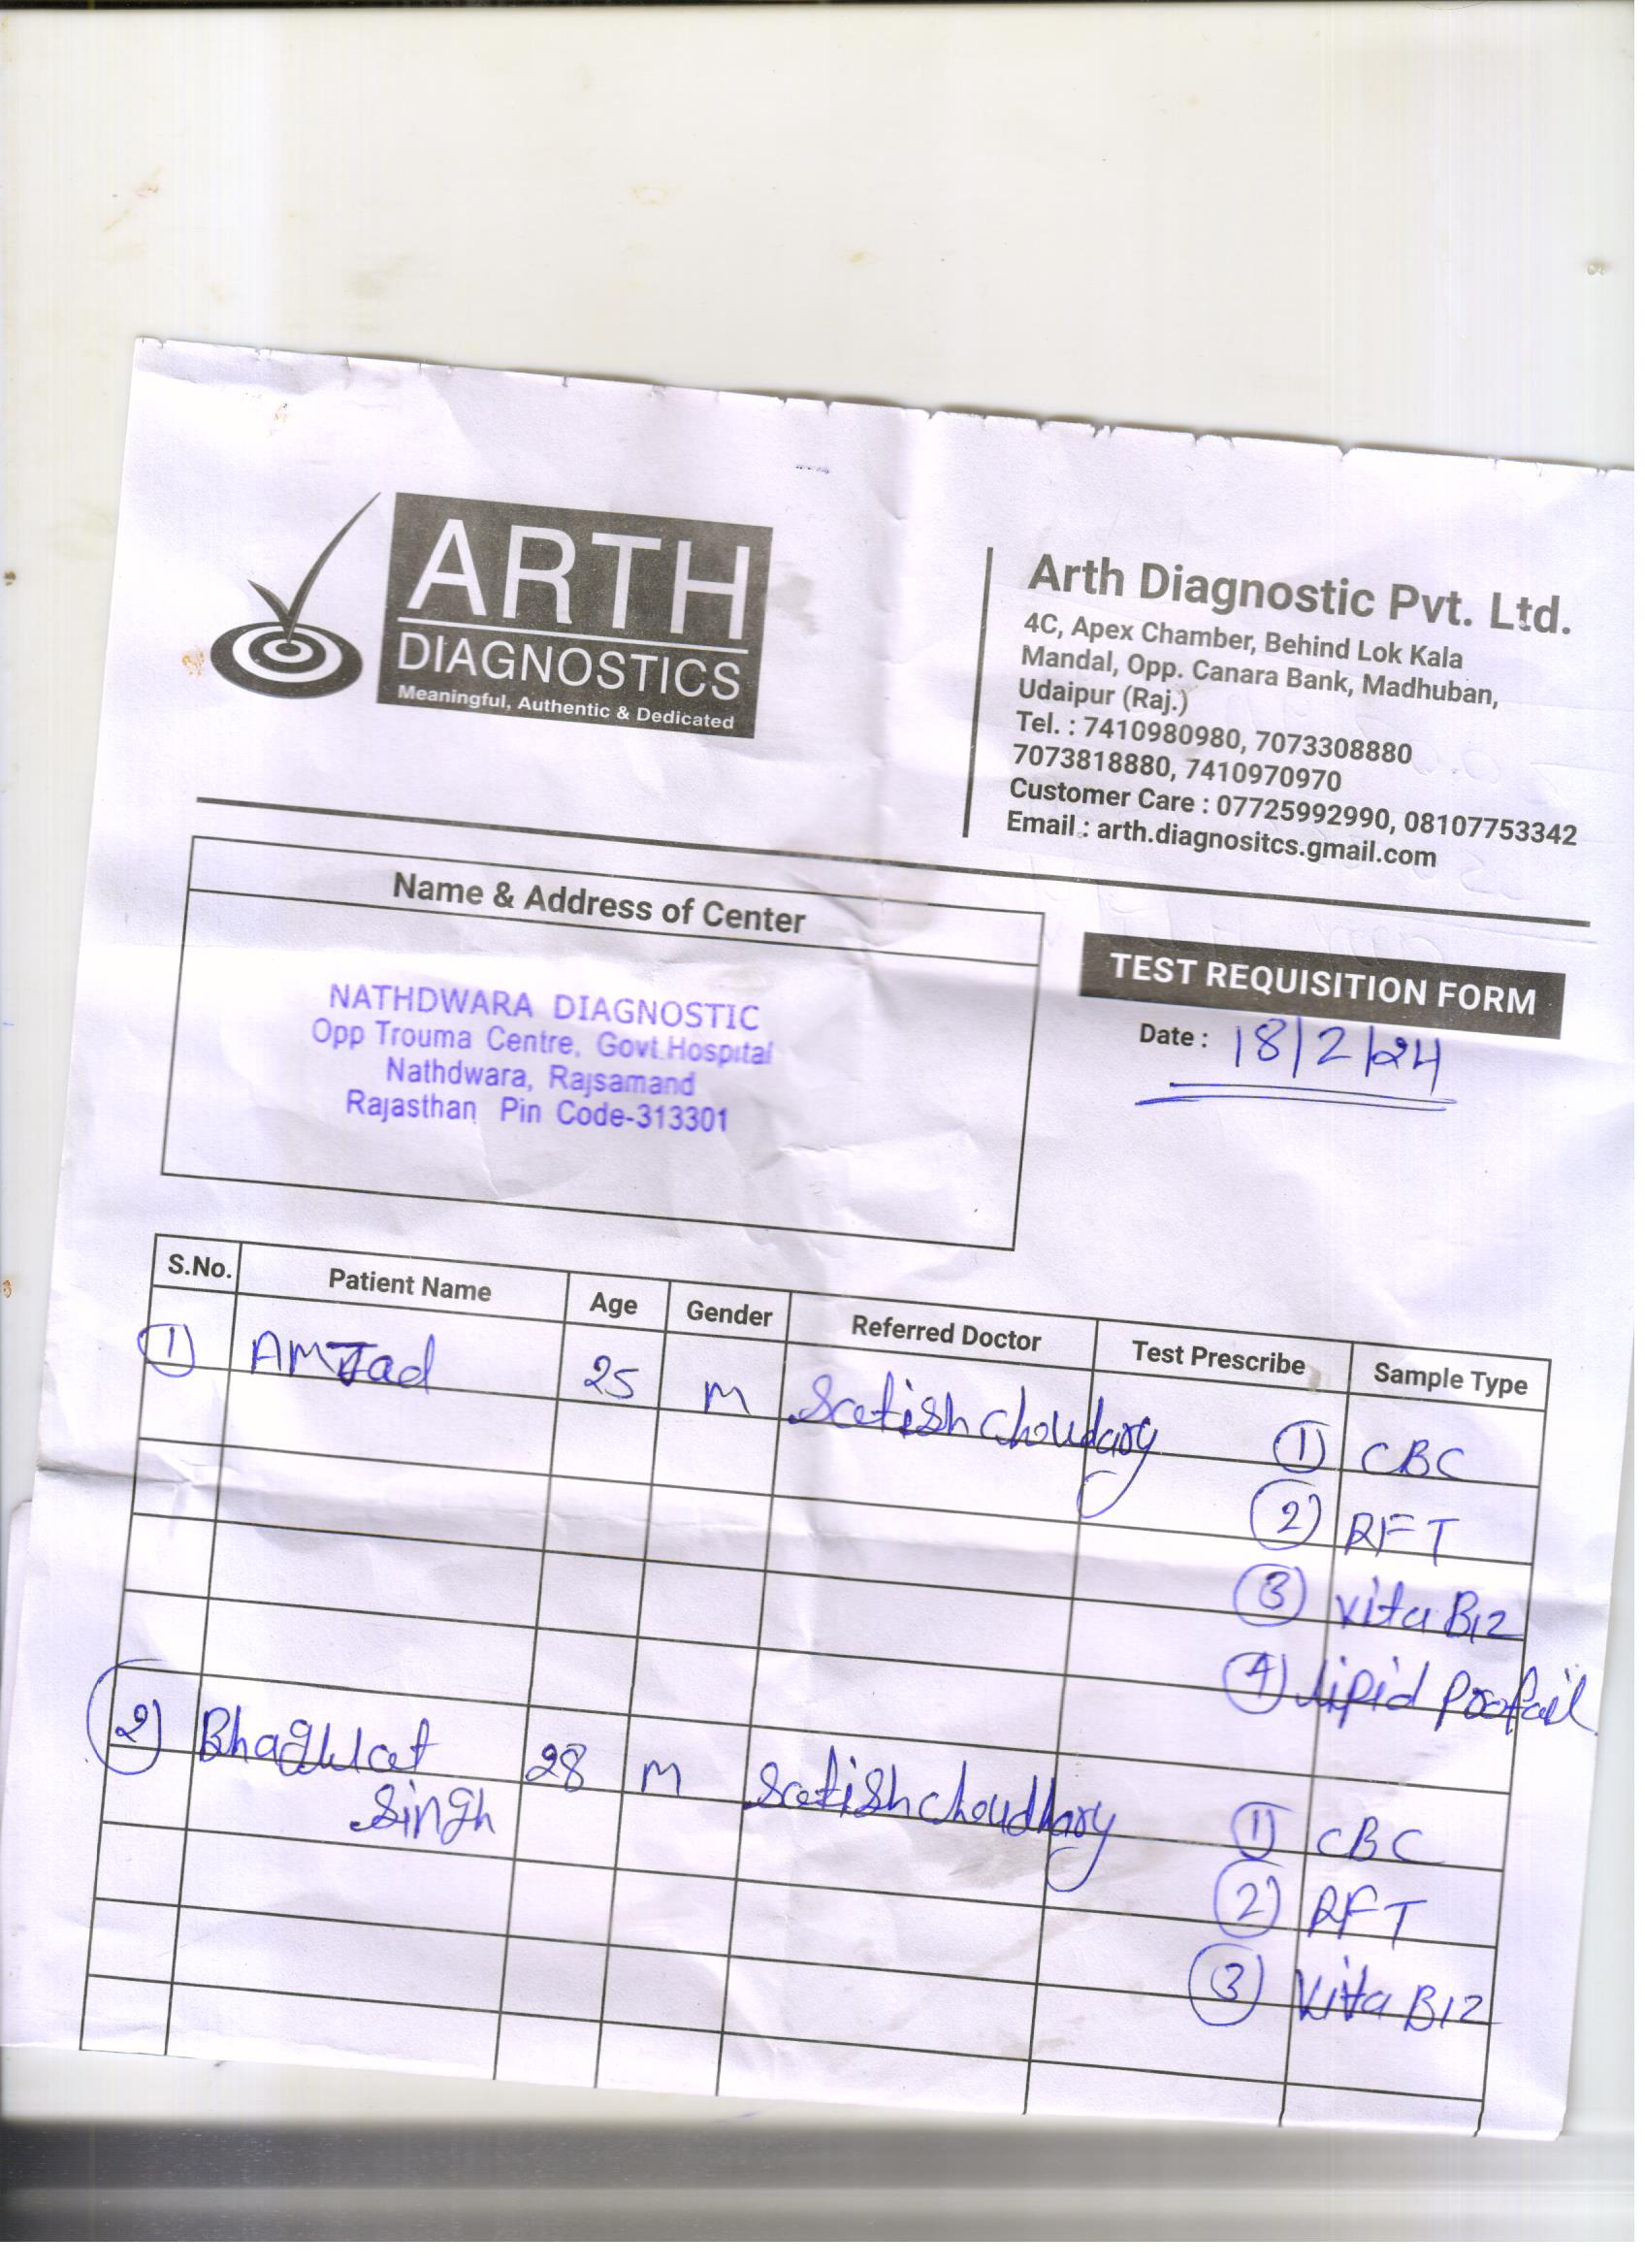 ARTH
DIAGNOSTICS
Meaningful, Authentic & Dedicated
Arth Diagnostic Pvt. Ltd.
4C, Apex Chamber, Behind Lok Kala
Mandal, Opp. Canara Bank, Madhuban,
Udaipur (Raj.)
Tel. : 7410980980, 7073308880
7073818880, 7410970970
Customer Care : 07725992990, 08107753342
Email : arth.diagnositcs.gmail.com
Name & Address of Center
NATHDWARA DIAGNOSTIC
Opp Trouma Centre, Govt Hospital
Nathdwara, Rajsamand
Rajasthan Pin Code-313301
TEST REQUISITION FORM
Date : 18/2/24
S.No. Patient Name Age Gender Referred Doctor Test Prescribe Sample Type
1 AMJad 25 M Satish Choudary 1 CBC
2 RFT
3 Vita B12
4 lipid Profail
2 Bhagwat 28 M Satish Choudhary 1 CBC
Singh
2 RFT
3 Vita B12